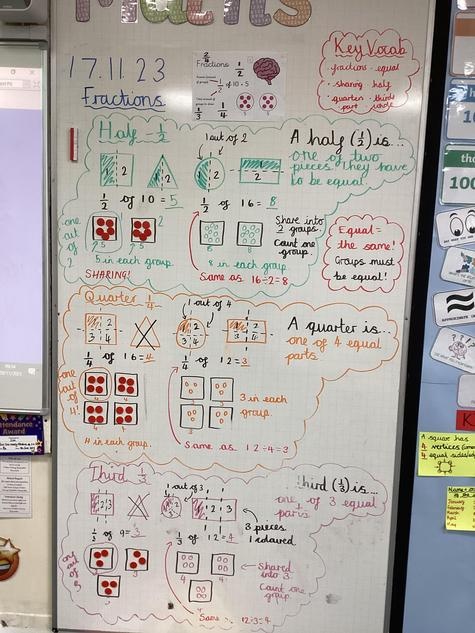 Maths
17.11.23
Fractions
Fractions 1/2
1/2 of 10 = 5
Key Vocab
fractions equal
sharing half
quarter third
part whole
Half - 1/2
1 out of 2
A half (1/2) is...
one of two
pieces. They have
to be equal.
1 2
1 2
1/2 of 10 = 5
1/2 of 16 = 8
one
out
of
2
5 5
5 in each group.
SHARING!
8 in each group.
Same as 16÷2=8
Share into
2 groups.
Count one
group.
Equal =
the same!
Groups must
be equal!
Quarter 1/4
1 out of 4
A quarter is...
one of 4 equal
parts.
1 2
3 4
1/4 of 16 = 4
1/4 of 12 = 3
one
out
of
4!
4 in each group.
3 in each
group.
Same as 12÷4=3
Third 1/3
1 out of 3
Third (1/3) is...
one of 3 equal
parts
1 2 3
1 2 3
3 pieces
1 coloured
1/3 of 9 = 3
1/3 of 12 = 4
one
out
of
3
3 3
3
4 4
4
Shared
into 3.
Count one
group.
Same 12÷3=4
Attendance
Award
A square has
4 vertices
4 equal sides
January
February
March
April
May